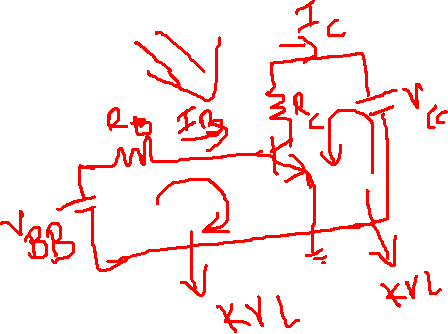 IC
RB
IB
RC
VCC
VBB
KVL
KVL